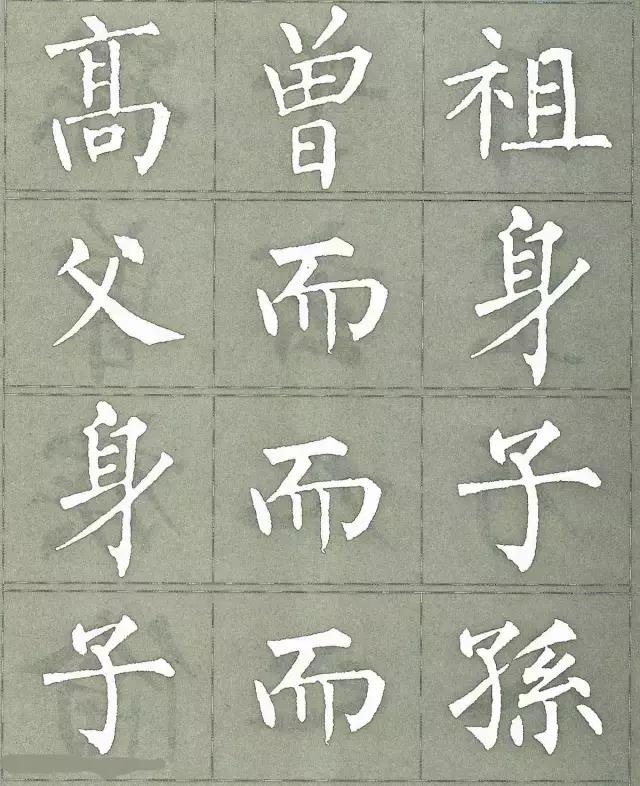 高曽祖
父而身
身而子
子而孫